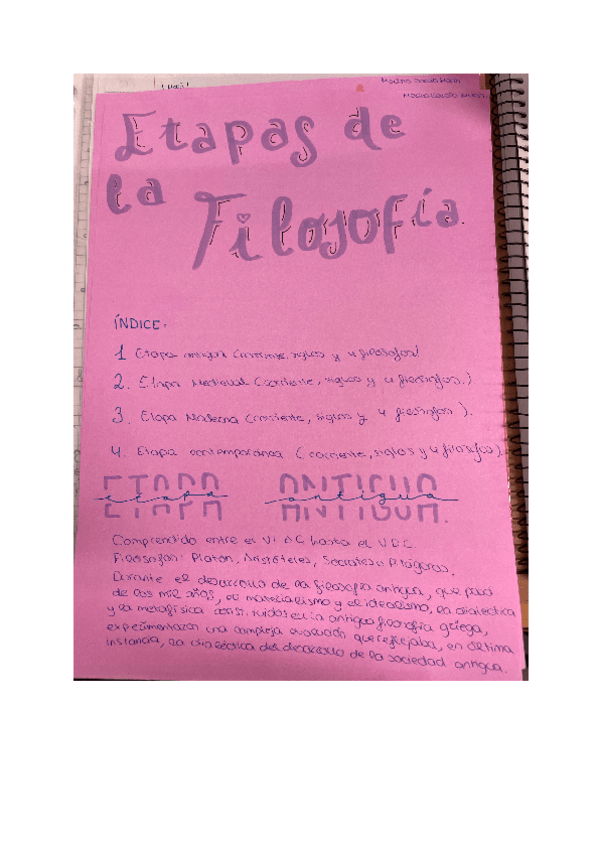 Etapas de
la
Filosofía.
ÍNDICE:
1 Etapa antigua (corriente, siglos y 4 filósofos)
2. Etapa Medieval (corriente, siglos y 4 filósofos.)
3. Etapa Moderna (corriente, siglos y 4 filósofos).
4. Etapa contemporánea (corriente, siglos y 4 filósofos).
ETAPA ANTIGUA.
etapa antigua
Comprendido entre el VI AC hasta el V D.C.
Filósofos: Platón, Aristóteles, Sócrates e Pitágoras.
Durante el desarrollo de la filosofía antigua, que pasó
de los mil años, el materialismo y el idealismo, la dialéctica
y la metafísica en la antigua filosofía griega,
experimentaron una compleja evolución que reflejaba, en última
instancia, la dialéctica del desarrollo de la sociedad antigua.